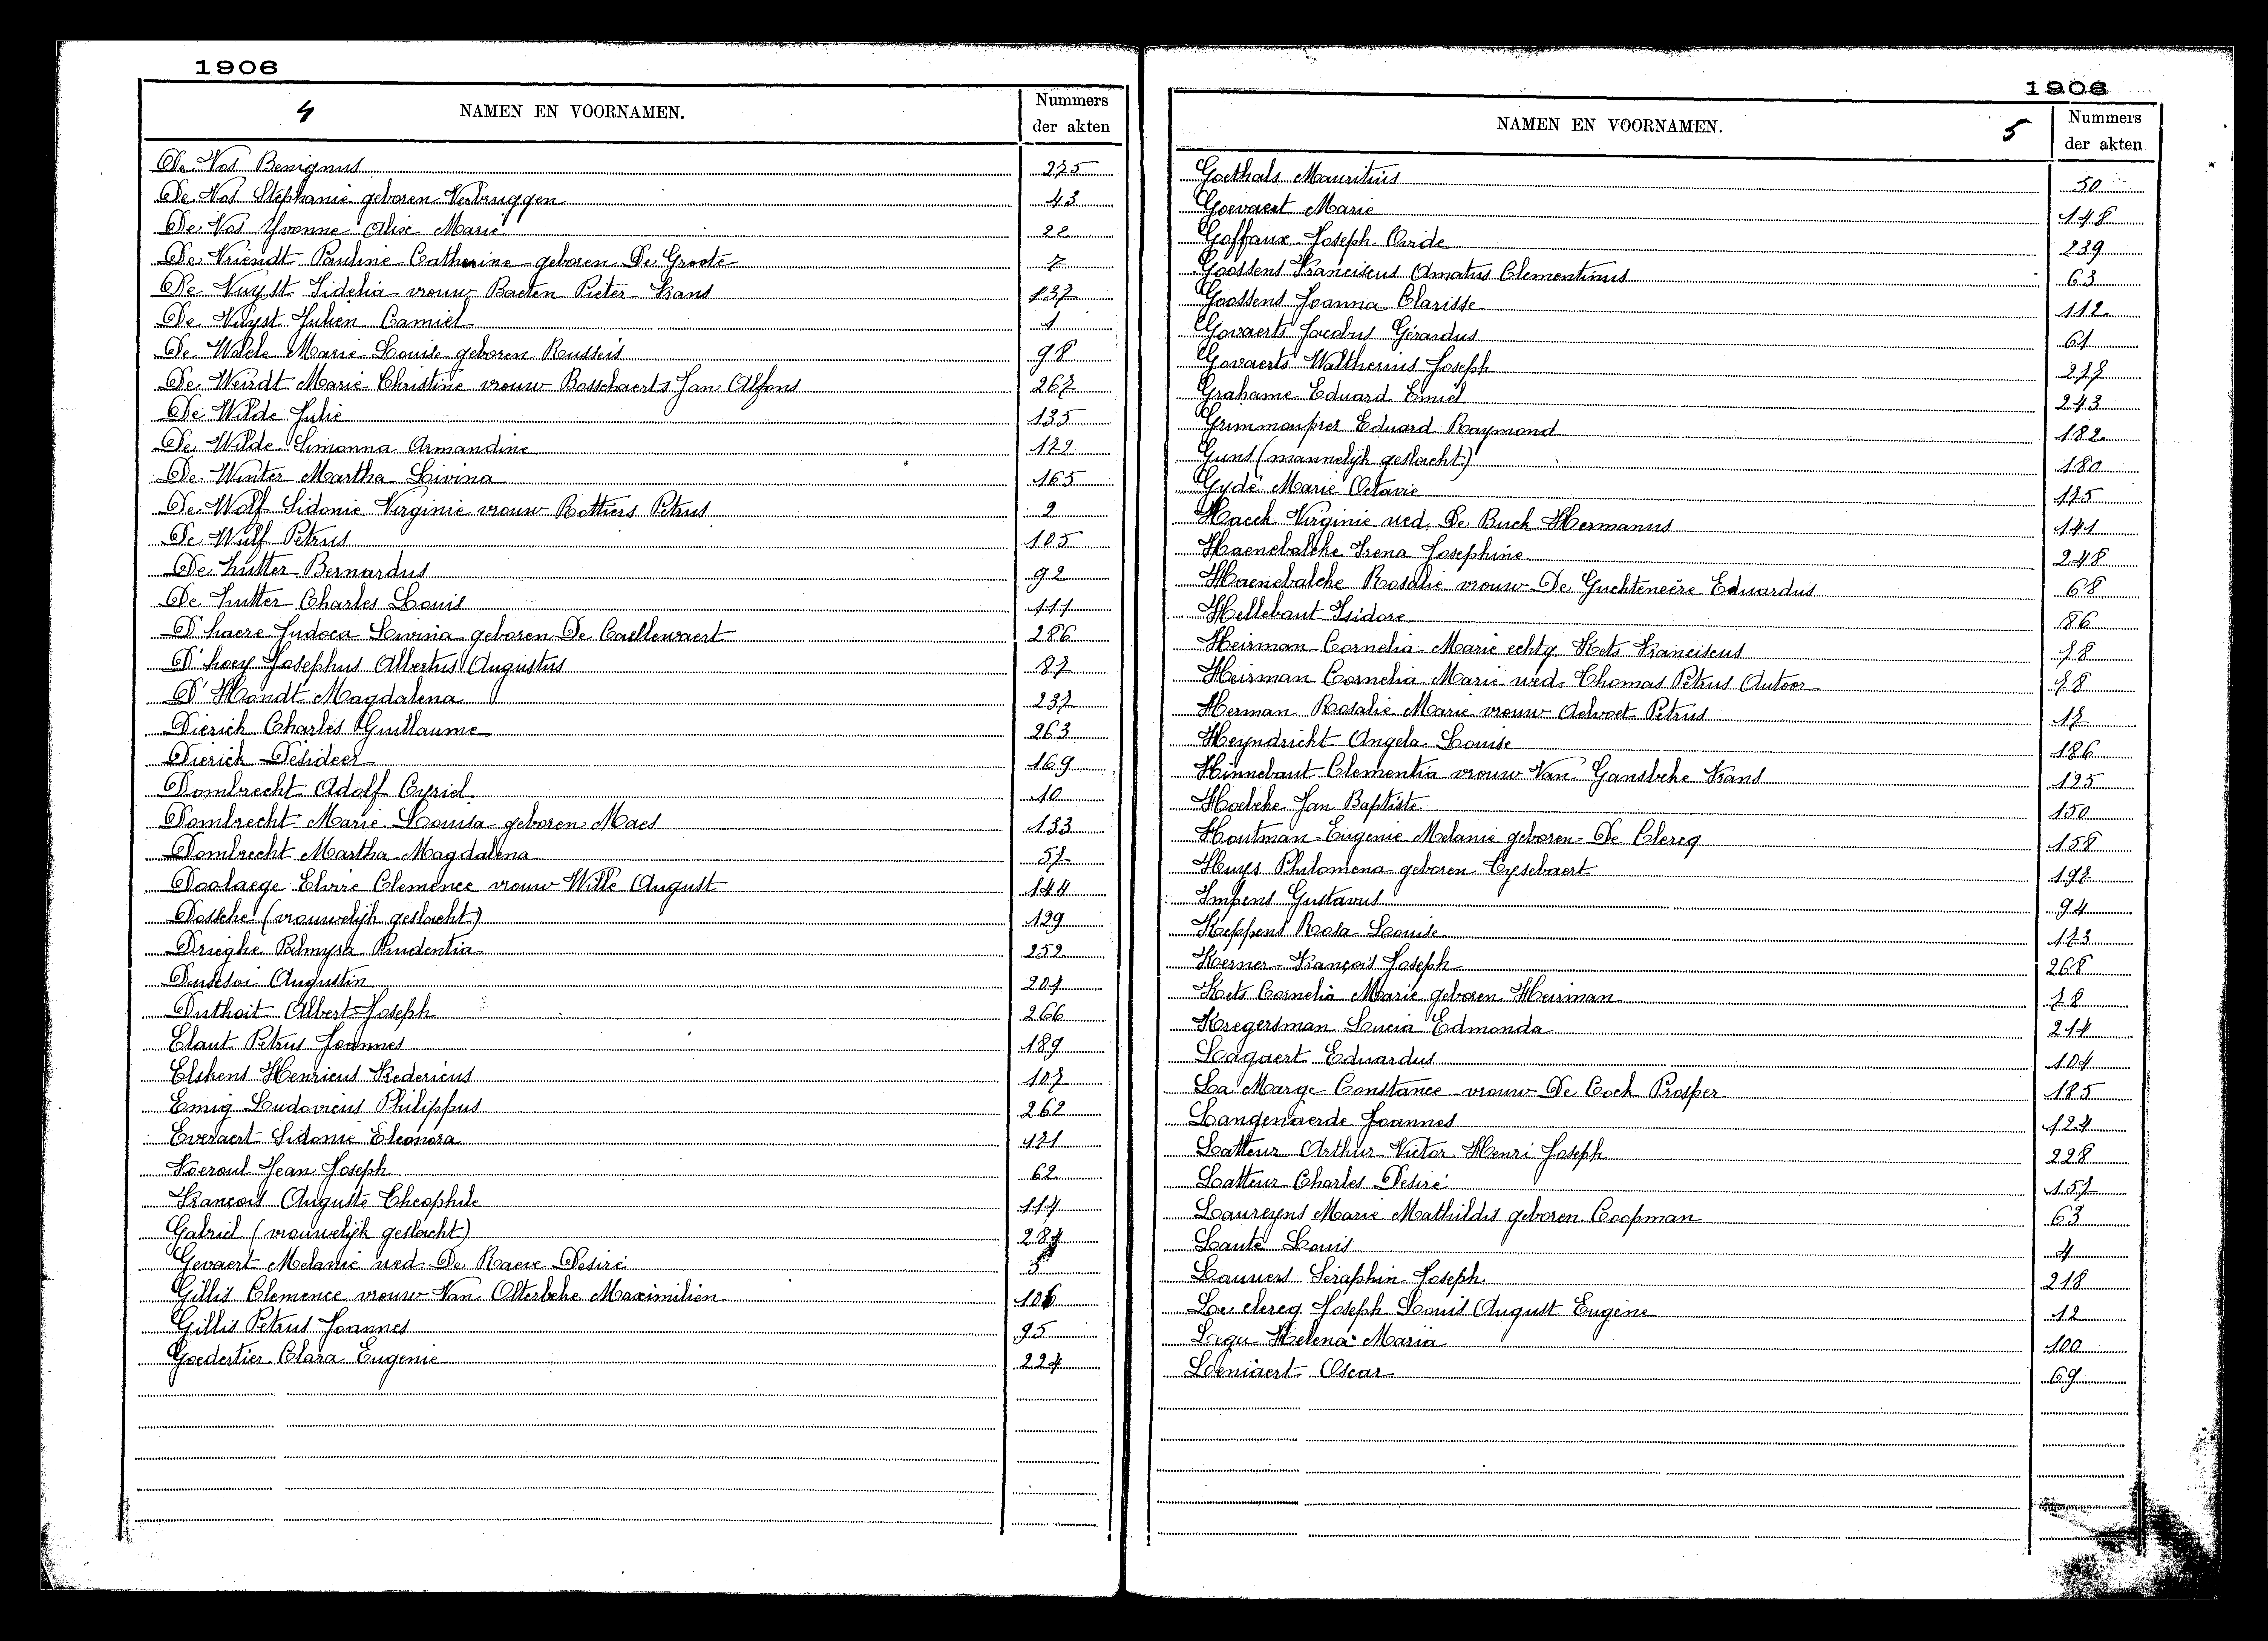 1906
4 NAMEN EN VOORNAMEN. Nummers der akten
De Vos Benignus 275
De Vos Stéphanie geboren Verbruggen 43
De Vos Yvonne Alixe Marie 22
De Vriendt Pauline Catherine geboren De Groote 7
De Vuyst Fidelia vrouw Baeten Pieter Frans 137
De Vuyst Julien Camiel 1
De Waele Marie Louise geboren 98
De Weirdt Marie Christine vrouw Bosschaerts Jan Alfons 267
De Wilde Julie 135
De Wilde Simonna Armandine 172
De Winter Martha Livina 165
De Wolf Sidonie Virginie vrouw Rottiers Petrus 2
De Wulf Petrus 105
De Zutter Bernardus 92
De Zutter Charles Louis 111
D'haere Judoca Livina geboren De Caellewaert 286
D'hoey Josephus Albertus Augustus 87
D'Hondt Magdalena 237
Dierick Charles Guillaume 263
Dierick Desideer 169
Dombrecht Adolf Cyriel 10
Dombrecht Marie Louisa geboren Maes 133
Dombrecht Martha Magdalena 57
Doolaege Elvire Clemence vrouw Wille August 144
Dossche (vrouwelijk geslacht) 129
Drieghe Palmyra Prudentia 252
Augustin 204
Duthoit Albert Joseph 266
Elaut Petrus Joannes 189
Elskens Henricus Fredericus 107
Emig Ludovicus Philippus 262
Everaert Sidonie Eleonora 121
Jean Joseph 62
François Auguste Théophile 114
Gabriel (vrouwelijk geslacht) 284
Gevaert Melanie wed. De Raeve Desiré 5
Gillis Clemence vrouw Van Olterbeke Maximilien 106
Gillis Petrus Joannes 95
Goedertier Clara Eugenie 224
1906
NAMEN EN VOORNAMEN. 5 Nummers der akten
Goethals Mauritius 50
Goevaert Marie 148
Goffaux Joseph Ovide 239
Goossens Franciscus Amatus Clementinus 63
Goossens Joanna Clarisse 112
Govaerts Jacobus Gérardus 61
Govaerts Waltherius Joseph 277
Grahame Eduard Emiel 243
Eduard Raymond 182
Guns (mannelijk geslacht) 180
Gydé Marie Octavie 175
Haeck Virginie wed. De Buck Hermanus 141
Haenebalcke Irena Josephine 248
Haenebalcke Rosalie vrouw De Guchteneëre Eduardus 68
Hellebaut Isidore 86
Heirman Cornelia Marie echtg Kets Franciscus 78
Heirman Cornelia Marie wed. Thomas Petrus Antoor 78
Herman Rosalie Marie vrouw Aelvoet Petrus 17
Heyndricht Angela Louise 186
Hinnebaut Clementia vrouw Van Gansbeke Frans 125
Hoebeke Jan Baptiste 150
Houtman Eugenie Melanie geboren De Clercq 158
Huys Philomena geboren Cysebaert 192
Impens Gustavus 94
Keppens Rosa Louise 173
Kerner François Joseph 268
Kets Cornelia Marie geboren Heirman 78
Kregersman Lucia Edmonda 214
Lagaert Eduardus 104
La Marge Constance vrouw De Cock Prosper 185
Langenaerde Joannes 124
Latteur Arthur Victor Henri Joseph 228
Latteur Charles Desiré 157
Laureyns Marie Mathildis geboren Coopman 63
Lauté Louis 4
Lauwers Séraphin Joseph 218
Le clercq Joseph Louis August Eugène 12
Legu Helena Maria 100
Loeniaert Oscar 69